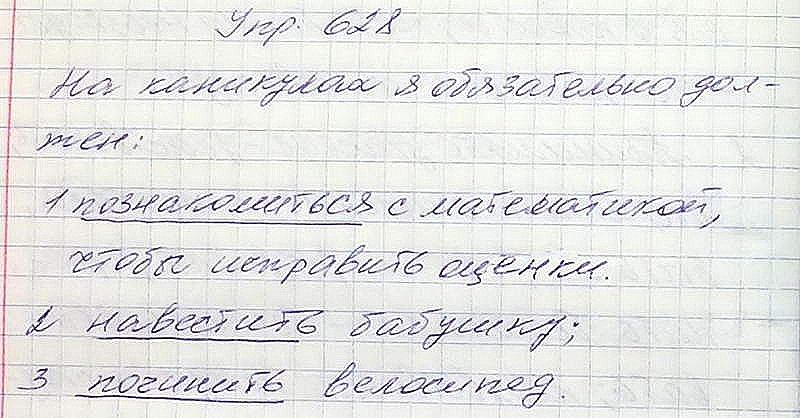 Упр. 628
На каникулах я обязательно дол-
жен:
1 познакомиться с математикой,
чтобы исправить оценки.
2 навестить бабушку;
3 починить велосипед.